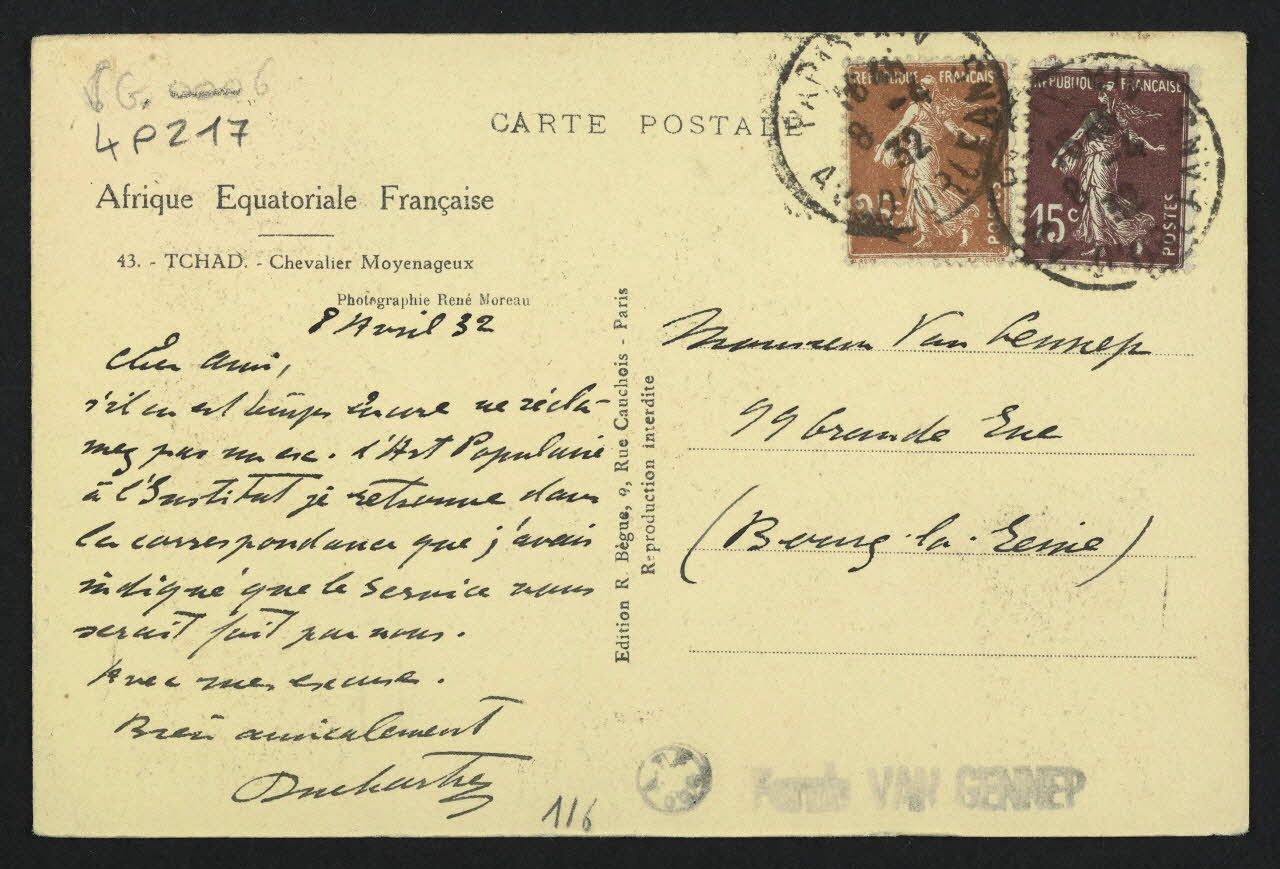 4P217
CARTE POSTALE
Afrique Equatoriale Française
43. - TCHAD. - Chevalier Moyenageux
Photographie René Moreau
8 Avril 32
Cher Ami,
s'il en est temps encore ne récla-
mez pas un ex. d'Art Populaire
à l'Institut je retrouve dans
la correspondance que j'avais
indiqué que le service vous
serait fait par nous.
Avec mes excuses.
Bien amicalement
Duchartre
116
Edition R. Bègue, 9, Rue Cauchois - Paris
Reproduction interdite
REPUBLIQUE FRANCAISE
POSTES
REPUBLIQUE FRANCAISE
15c
POSTES
Monsieur Van Gennep
99 Grande Rue
(Bourg-la-Reine)
Fonds VAN GENNEP